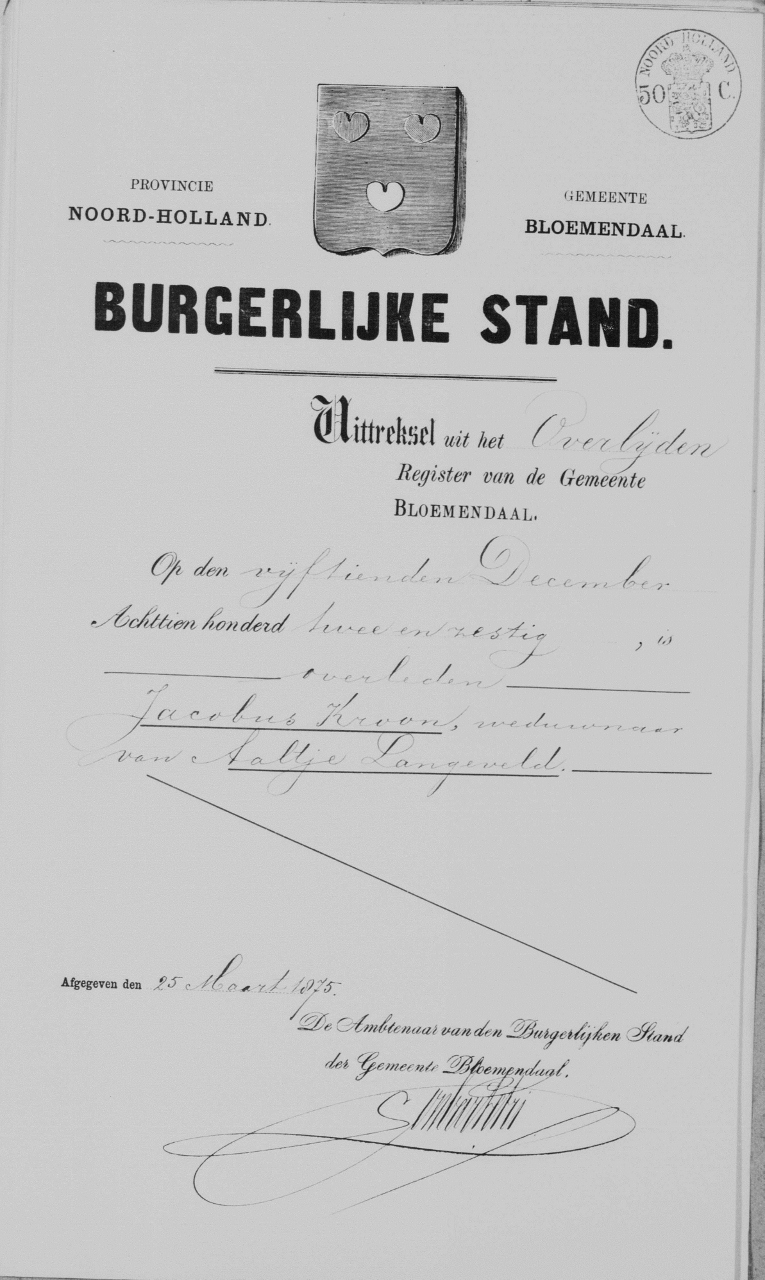 NOORD HOLLAND
50 C.
PROVINCIE
NOORD-HOLLAND.
GEMEENTE
BLOEMENDAAL.
BURGERLIJKE STAND.
Uittreksel uit het Overlijden
Register van de Gemeente
BLOEMENDAAL.
Op den vijftienden December
Achttien honderd twee en zestig, is
overleden
Jacobus Kroon, weduwnaar
van Aaltje Langeveld.
Afgegeven den 25 Maart 1875.
De Ambtenaar van den Burgerlijken Stand
der Gemeente Bloemendaal.